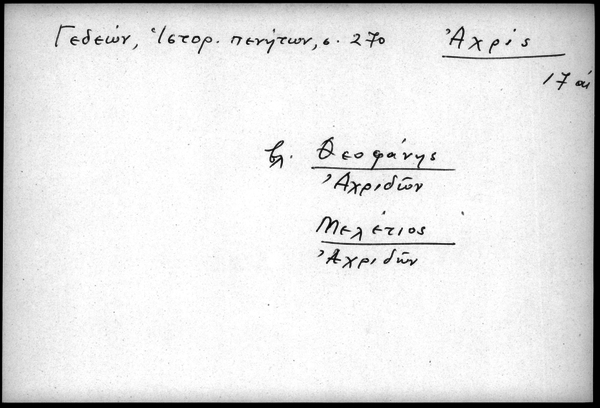 Γεδεών, Ἱστορ. πενήτων, σ. 270 Ἀχρίς
17 αἰ
βλ. Θεοφάνης
Ἀχριδῶν
Μελέτιος
Ἀχριδῶν